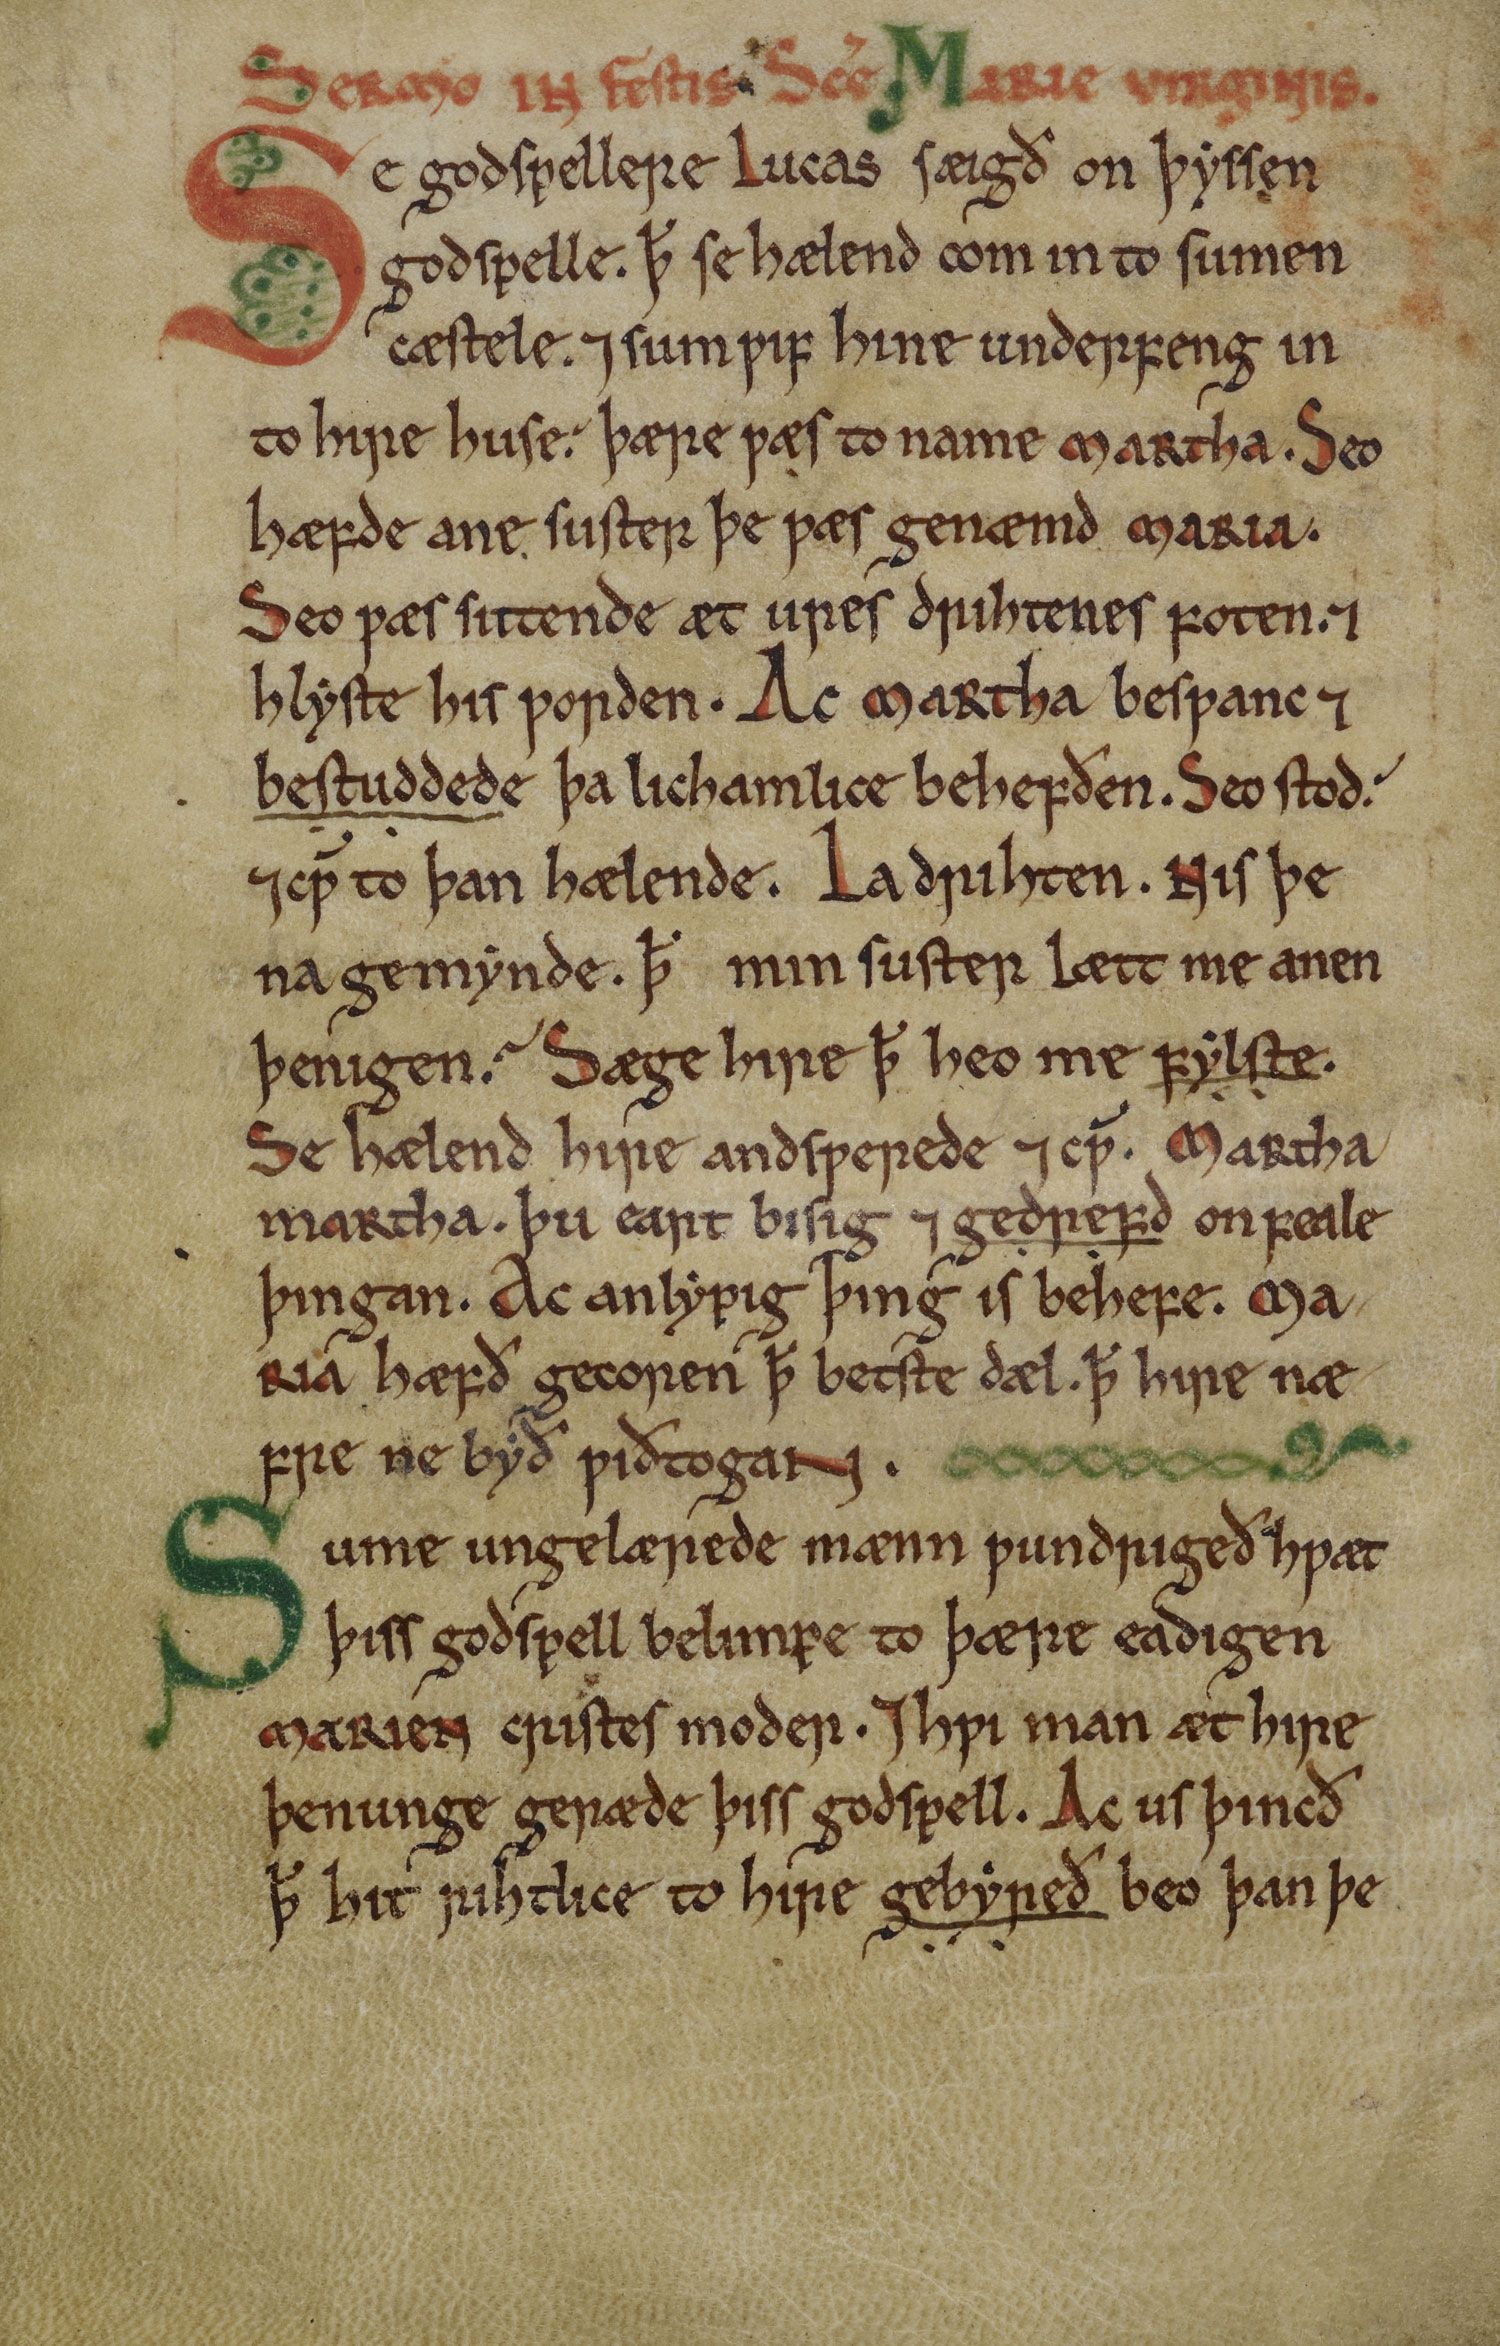 Sermo in festis Scē Marie virginis.
Se godspellere Lucas sæigð on þẏssen
godspelle. ꝥ se hælend com in to sumen
cæstele. ⁊ sum ƿif hine underfeng in
to hire huse. þære ƿæs to name Martha. Seo
hæfde ane suster þe ƿæs genæmd Maria.
Seo ƿæs sittende æt ures drihtenes foten. ⁊
hlẏste his ƿorden. Ac Martha besƿanc ⁊
bestuddede þa lichamlice behefðen. Seo stod.
⁊ cƿ̄ to þan hælende. La drihten. Nis þe
na gemẏnde. ꝥ min suster lætt me anen
þenigen. Sæge hire ꝥ heo me fẏlste.
Se hælend hire andsƿerede ⁊ cƿ̄. Martha
martha. þu eart bisig ⁊ gedrefd on feale
þingan. Ac anlẏpig þing is behefe. Ma
ria hæfð gecoren ꝥ betste dæl. ꝥ hire næ
fre ne bẏð ƿiðtogan.
Sume ungelærede mænn ƿundrigeð hƿæt
þiss godspell belimpe to þære eadigen
Marien cristes moder. ⁊ hƿi man æt hire
þenunge geræde þiss godspell. Ac us þincð
ꝥ hit rihtlice to hire gebẏreð beo þan þe